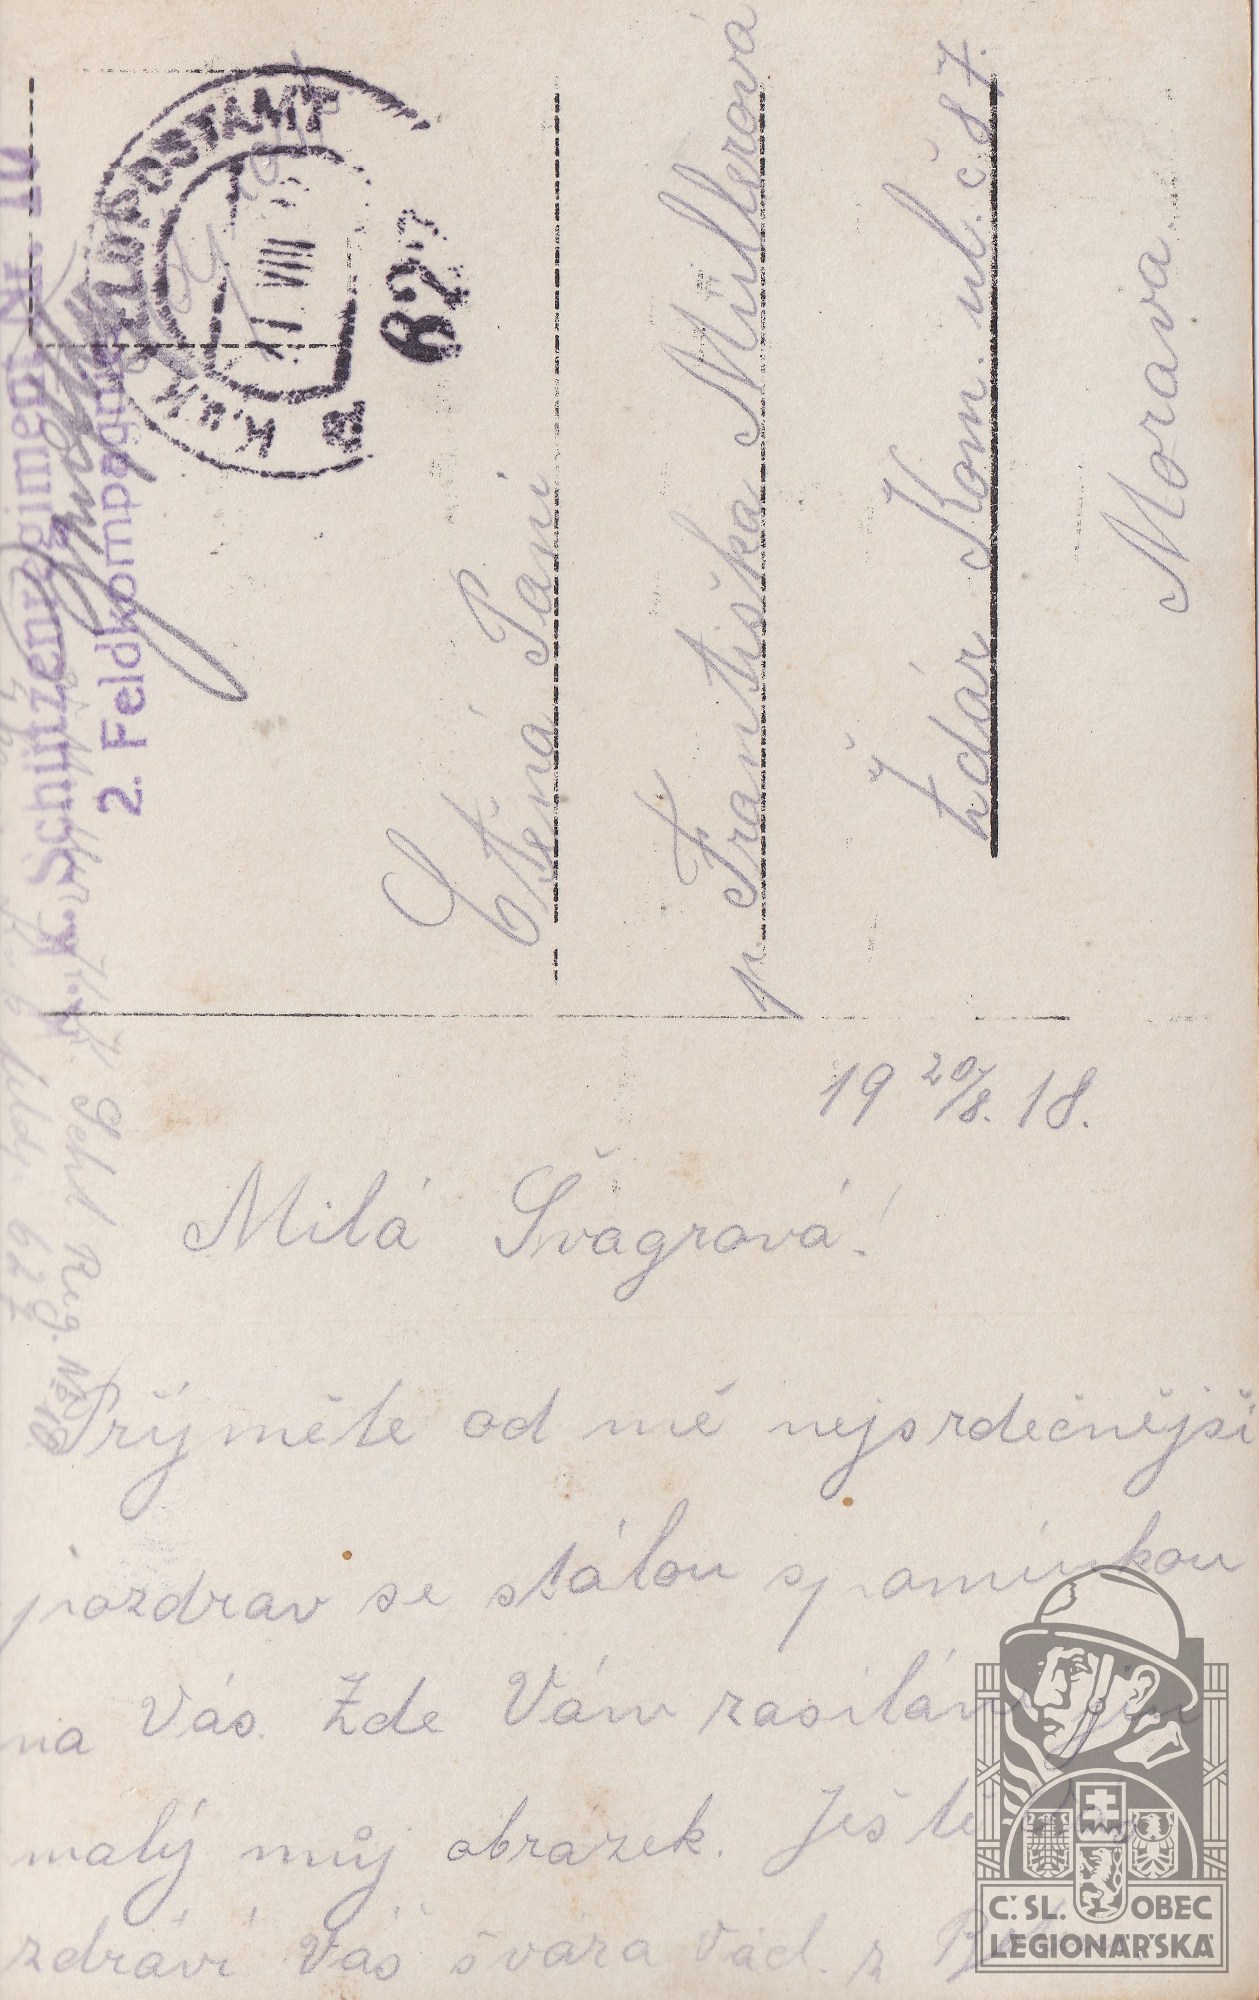 K.u.K. FELDPOSTAMT
a
VIII
627
K. k. Schützenregiment Nr. 10
2. Feldkompagnie
Ctěná Paní
p. Františka Müllerová
Ždár Kom. ul. č. 87.
Morava
Reg. No 10
627
19 20/8. 18.
Milá Švagrová!
Příjměte od mě nejsrdečnější
pozdrav se stálou spomínkou
na Vás. Zde Vám zasílám
malý můj obrázek. Ještě
zdraví Váš švára Václ. z
Č:SL. OBEC
LEGIONÁŘSKÁ